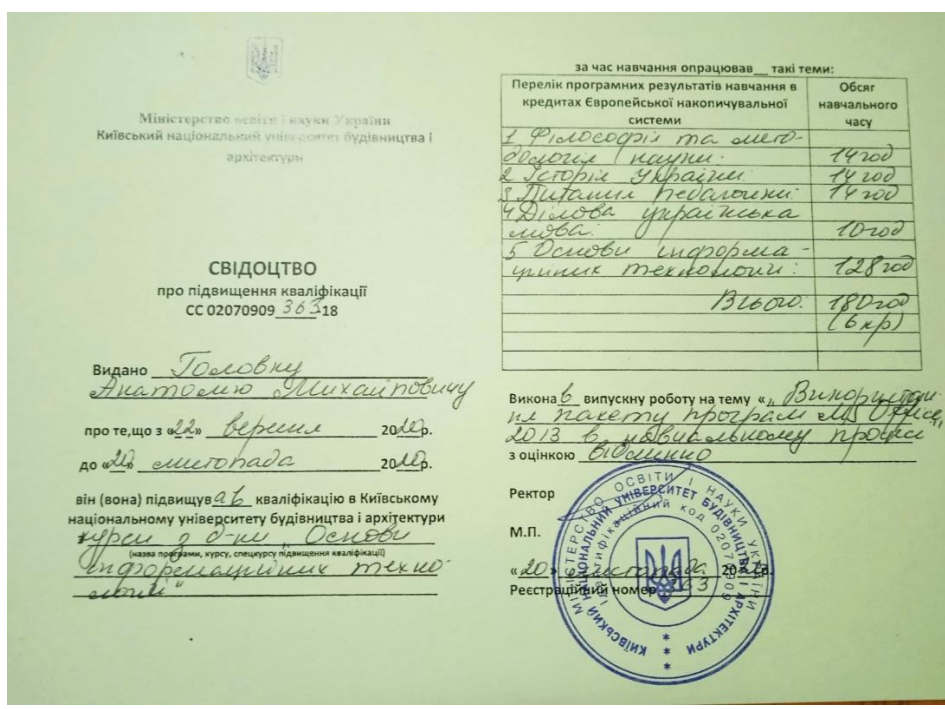 Міністерство освіти і науки України
Київський національний університет будівництва і
архітектури
СВІДОЦТВО
про підвищення кваліфікації
СС 02070909 363-18
Видано Головну
Анатолію Михайловичу
про те,що з «22» вересня 2020р.
до «20» листопада 2020р.
він (вона) підвищував кваліфікацію в Київському
національному університету будівництва і архітектури
курси з д-ни "Основи
(назва програми, курсу, спецкурсу підвищення кваліфікації)
інформаційних техно-
логій"
за час навчання опрацював__ такі теми:
Перелік програмних результатів навчання в
кредитах Європейської накопичувальної
системи
Обсяг
навчального
часу
1 Філософія та мето-
дологія науки. 14 год
2 Історія України. 14 год
3 Питання педагогіки. 14 год
4 Ділова українська
мова. 10 год
5 Основи інформа-
ційних технологій: 128 год
Всього: 180 год
(6 кр)
Виконав випускну роботу на тему «„Використан-
ня пакету програм MS Office
2013 в навчальному процесі
з оцінкою відмінно
Ректор
М.П.
«20» листопада 2020р.
Реєстраційний номер 363
МІНІСТЕРСТВО ОСВІТИ І НАУКИ УКРАЇНИ
КИЇВСЬКИЙ НАЦІОНАЛЬНИЙ УНІВЕРСИТЕТ БУДІВНИЦТВА І АРХІТЕКТУРИ
Ідентифікаційний код 02070909